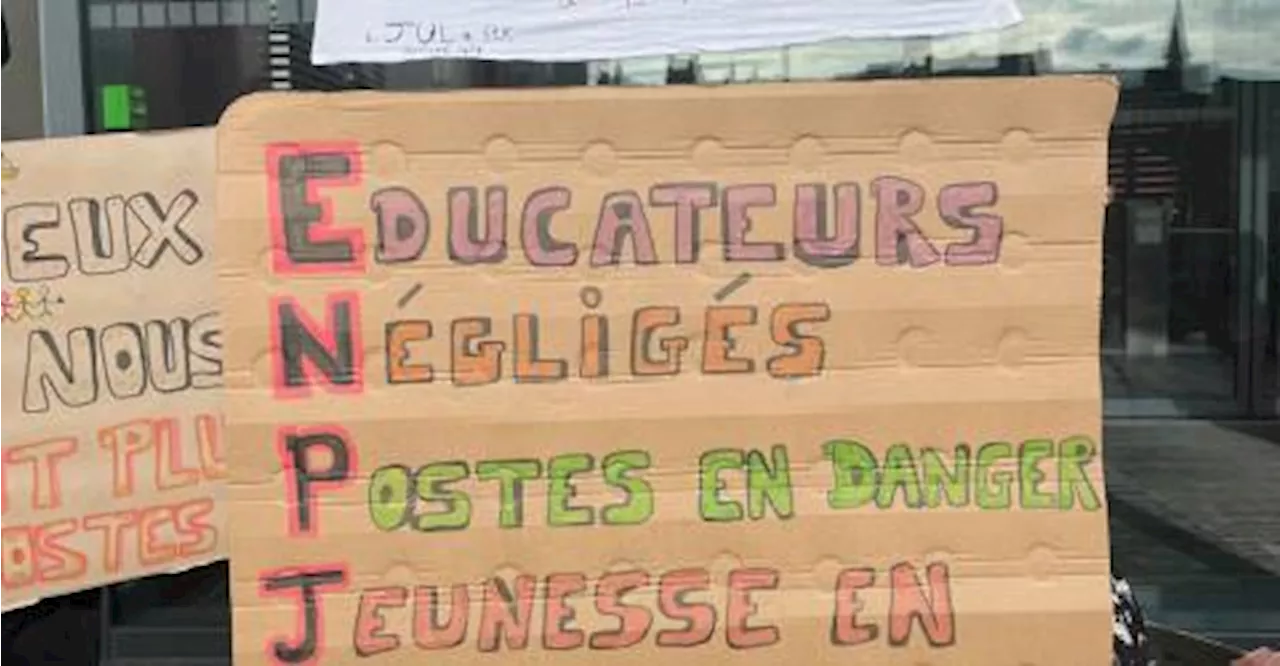 JUL
EUX
NOUS
T PLU
OSTES
EDUCATEURS
NÉGLIGÉS
POSTES EN DANGER
JEUNESSE EN